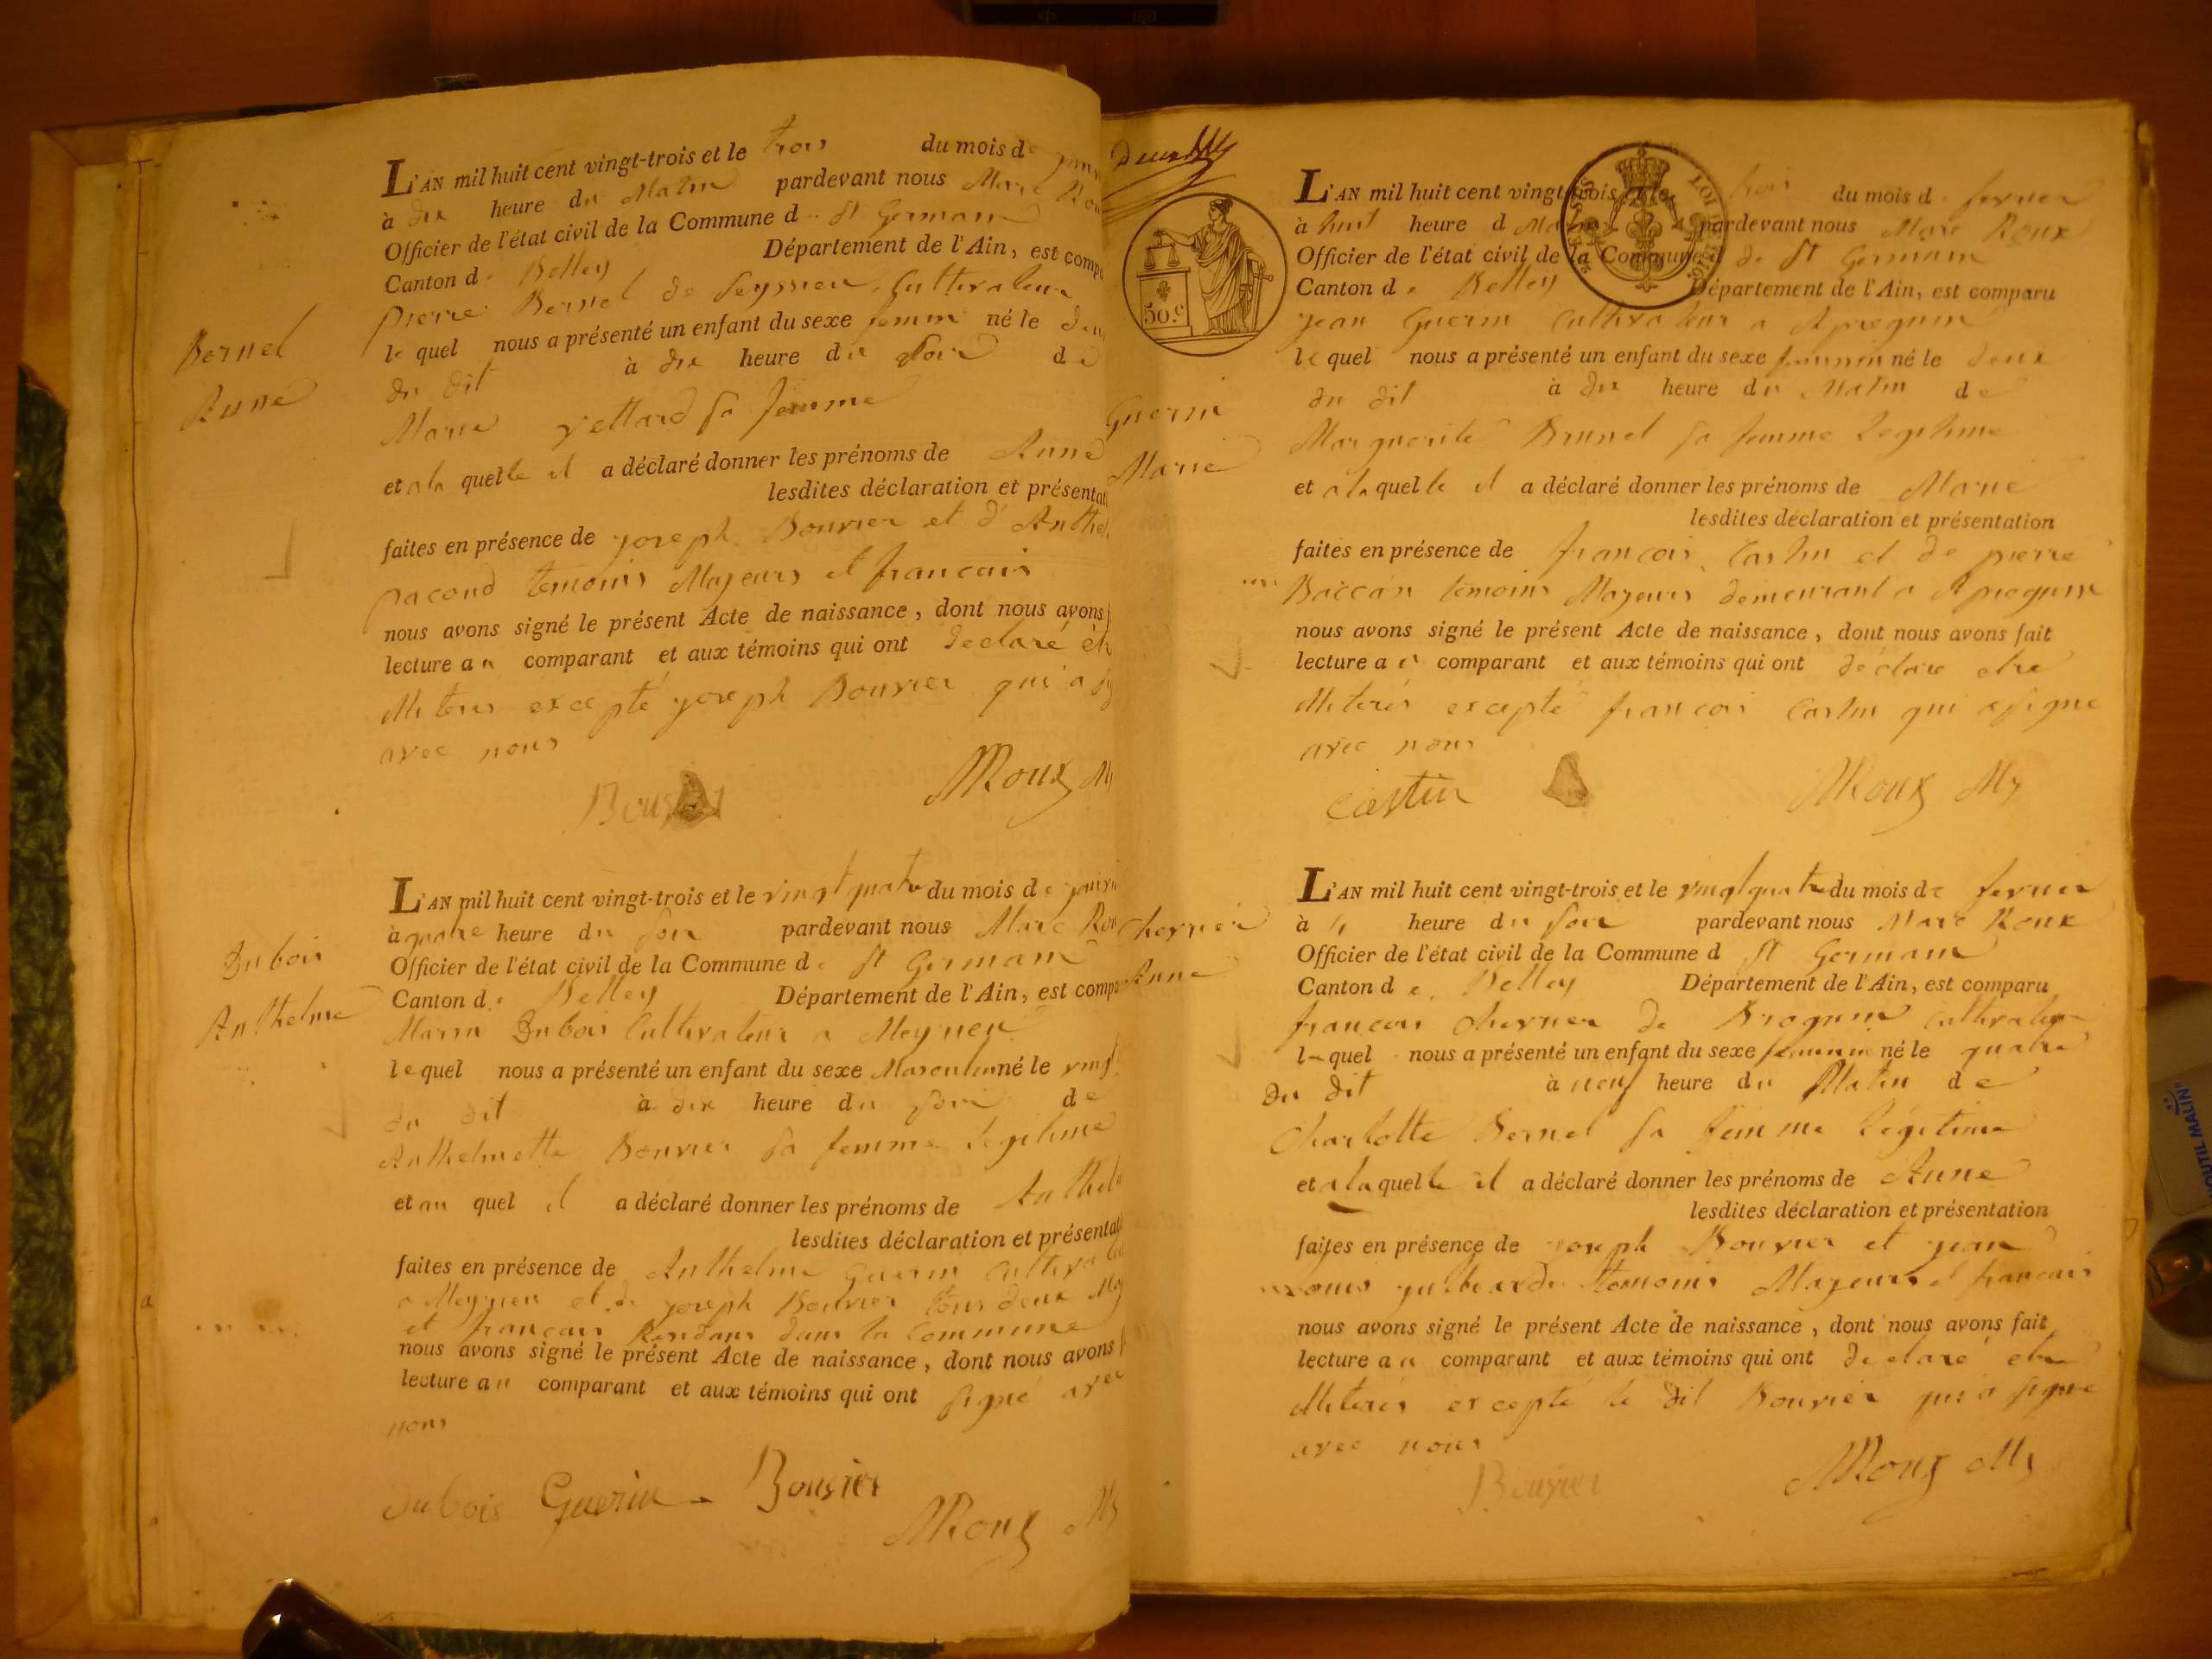 Bernel
Anne
L'AN mil huit cent vingt-trois et le trois du mois de
à dix heure du Matin pardevant nous Marc
Officier de l'état civil de la Commune d St Germain
Canton de Belley Département de l'Ain, est
pierre Bernel de Seyssieu Cultivateur
le quel nous a présenté un enfant du sexe femin né le
du dit à dix heure du Soir de
Marie vettard sa femme
et a la quelle il a déclaré donner les prénoms de Anne
lesdites déclaration et
faites en présence de joseph Bouvier et d'
pacoud temoins Majeurs et francais
nous avons signé le présent Acte de naissance, dont nous avons
lecture au comparant et aux témoins qui ont declaré
illiterés excepté joseph Bouvier qui a
avec nous
MRoux
Dubois
Anthelme
L'AN mil huit cent vingt-trois et le vingt quatre du mois de
à quatre heure du soir pardevant nous Marc
Officier de l'état civil de la Commune de St Germain
Canton de Belley Département de l'Ain, est
Dubois Cultivateur a Meyrieu
lequel nous a présenté un enfant du sexe Masculin né le
du dit à dix heure du soir de
Anthelmette Bouvier sa femme légitime
et au quel il a déclaré donner les prénoms de
lesdites déclaration et
faites en présence de Anthelme Guerin
a Meyrieu et de joseph Bouvier tous deux
et francais dans la Commune
nous avons signé le présent Acte de naissance, dont nous avons
lecture au comparant et aux témoins qui ont signé avec
nous
Dubois Guerin Bouvier
MRoux
50.c
Guerin
Marie
L'AN mil huit cent vingt-trois et le trois du mois de fevrier
à huit heure d pardevant nous Marc Roux
Officier de l'état civil de la Commune de St Germain
Canton de Belley Département de l'Ain, est comparu
jean Guerin Cultivateur a Apregnin
lequel nous a présenté un enfant du sexe feminin né le deux
du dit à dix heure du Matin de
Marguerite Brunel sa femme legitime
et a la quelle il a déclaré donner les prénoms de Marie
lesdites déclaration et présentation
faites en présence de francois Castin et de pierre
temoins Majeurs demeurant a Apregnin
nous avons signé le présent Acte de naissance, dont nous avons fait
lecture au comparant et aux témoins qui ont déclaré etre
illiterés excepté francois Castin qui a signé
avec nous
Castin MRoux
chervier
Anne
L'AN mil huit cent vingt-trois et le vingt quatre du mois de fevrier
à heure du soir pardevant nous Marc Roux
Officier de l'état civil de la Commune d St Germain
Canton de Belley Département de l'Ain, est comparu
francois chervier de Brognin cultivateur
lequel nous a présenté un enfant du sexe feminin né le quatre
du dit à neuf heure du Matin de
Charlotte Bernel sa femme légitime
et a la quelle il a déclaré donner les prénoms de Anne
lesdites déclaration et présentation
faites en présence de joseph Bouvier et jean
temoins Majeurs et francais
nous avons signé le présent Acte de naissance, dont nous avons fait
lecture au comparant et aux témoins qui ont declaré etre
illiterés excepté le dit Bouvier qui a signé
avec nous
Bouvier MRoux
OUTIL MALIN